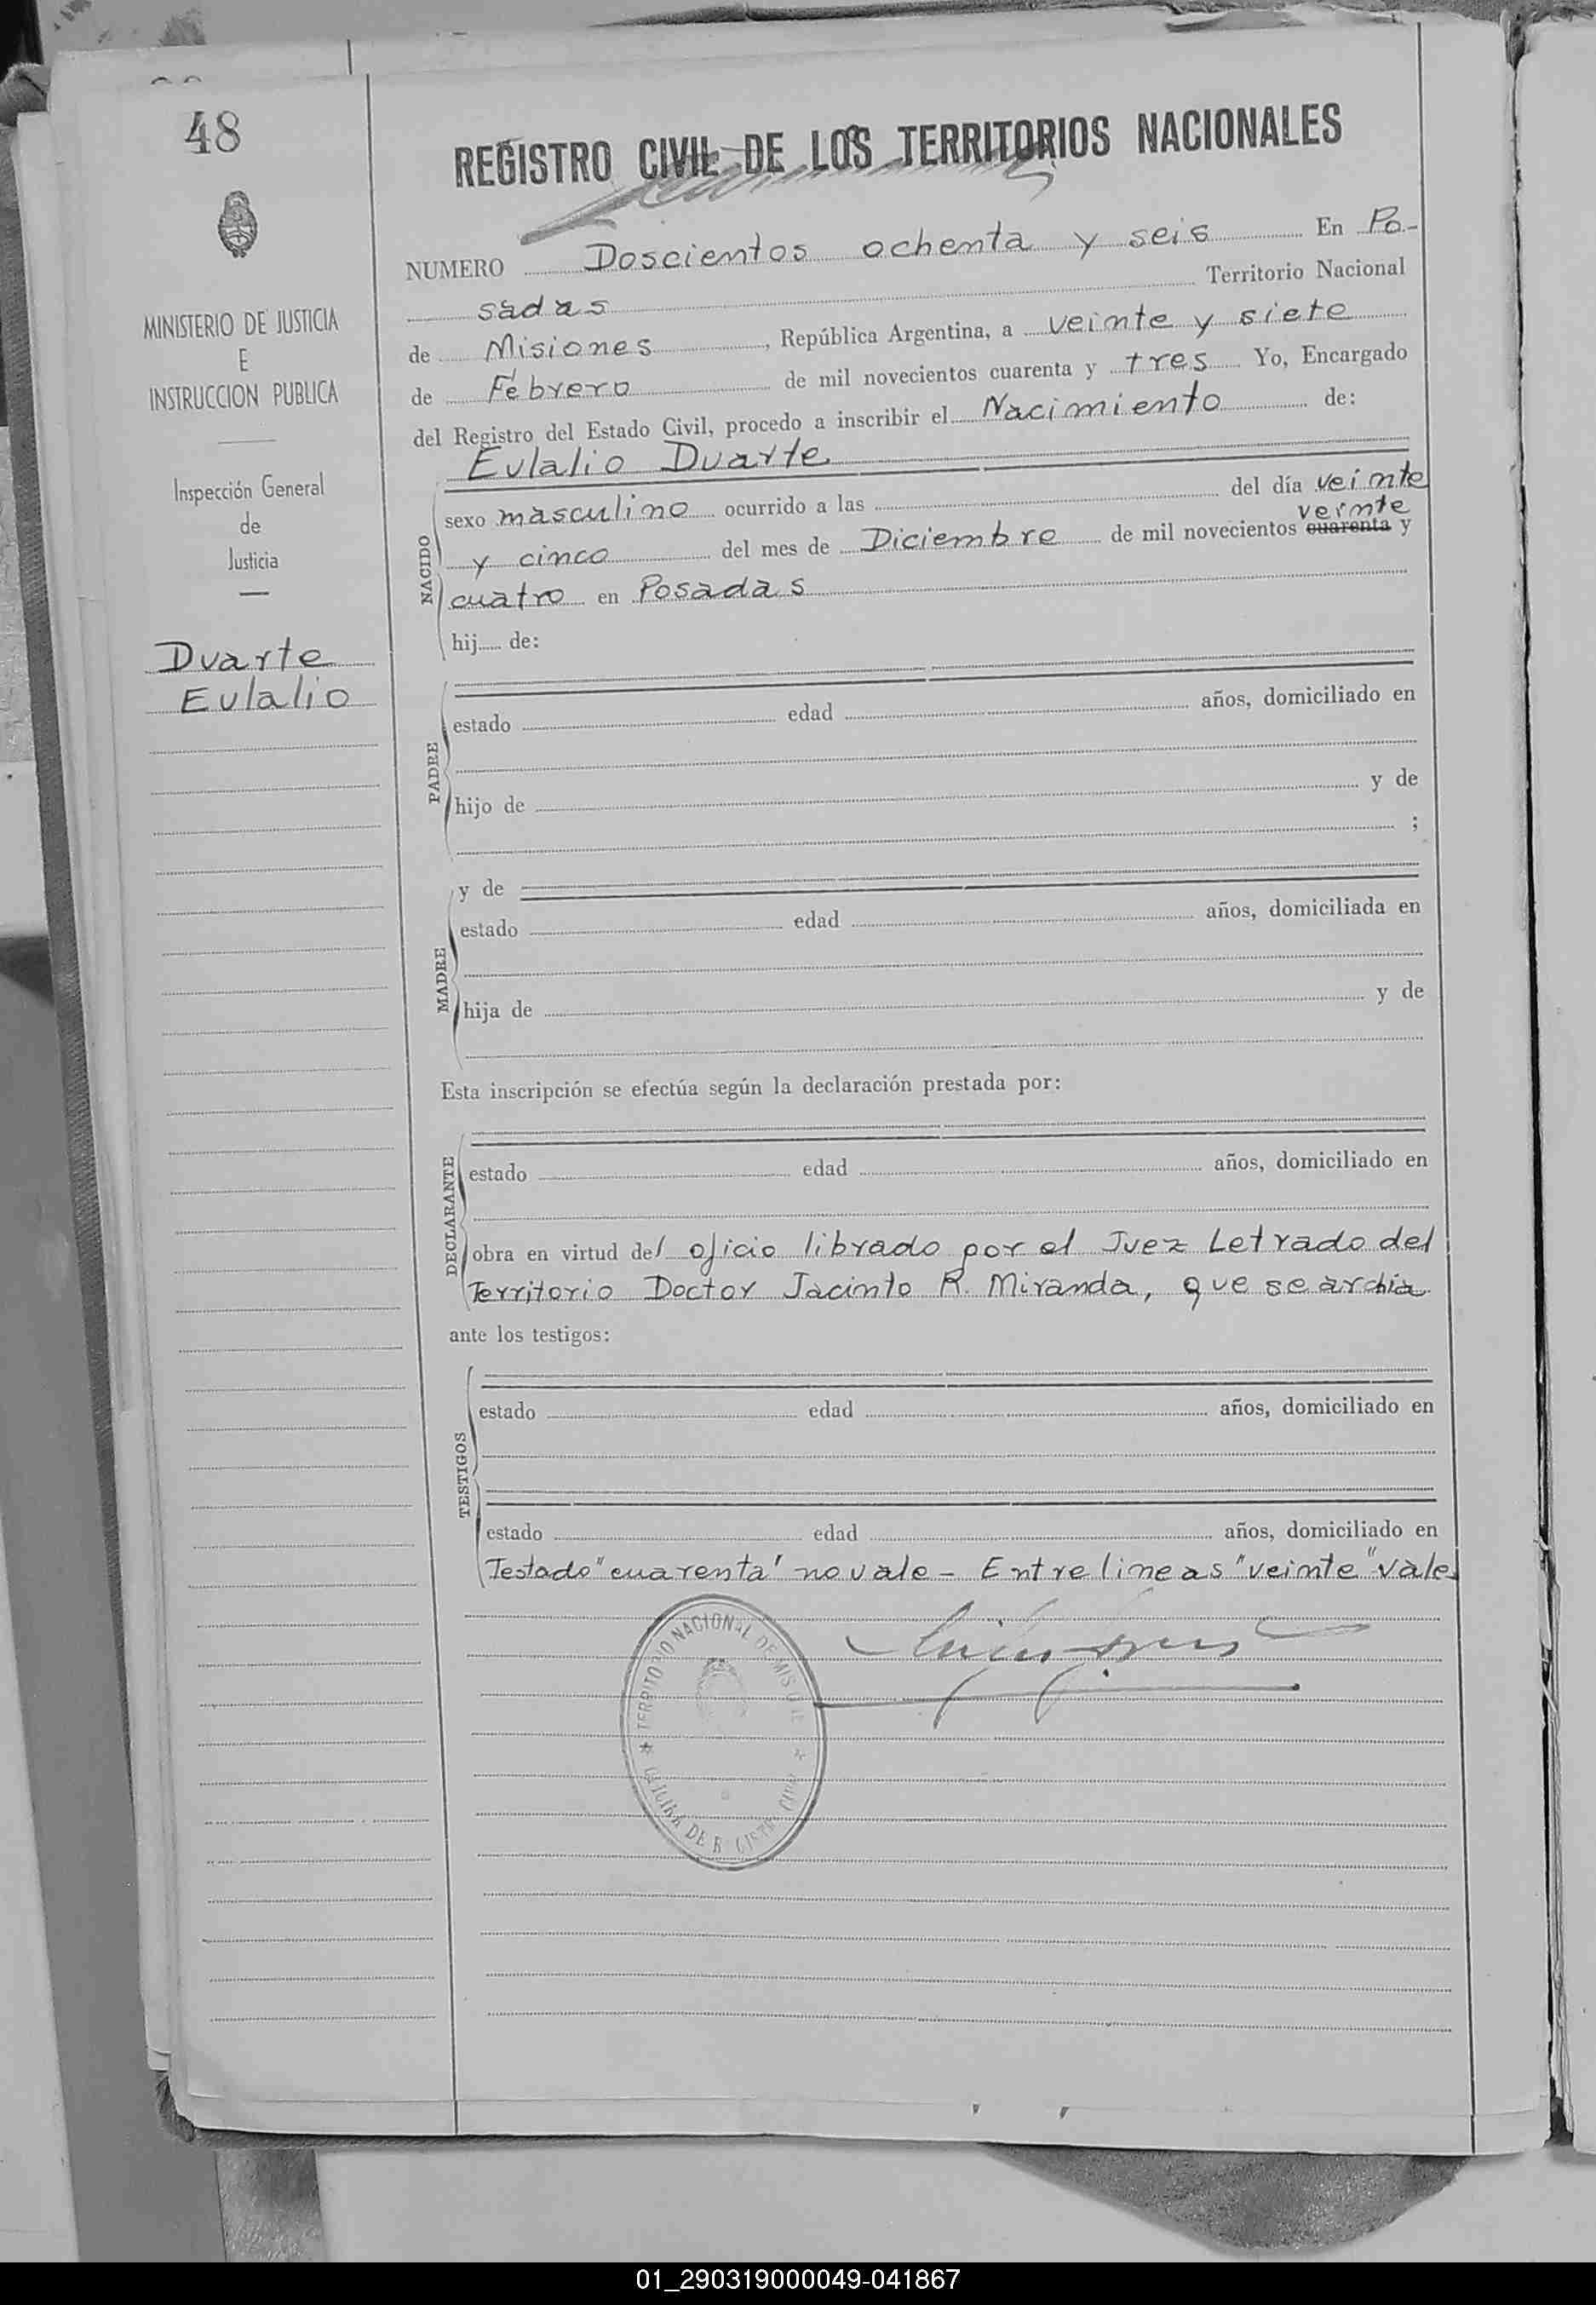 48
MINISTERIO DE JUSTICIA
E
INSTRUCCION PUBLICA
Inspección General
de
Justicia
Duarte
Eulalio
REGISTRO CIVIL DE LOS TERRITORIOS NACIONALES
NUMERO Doscientos ochenta y seis En Po-
sadas Territorio Nacional
de Misiones, República Argentina, a veinte y siete
de Febrero de mil novecientos cuarenta y tres Yo, Encargado
del Registro del Estado Civil, procedo a inscribir el Nacimiento de:
Eulalio Duarte
NACIDO
sexo masculino ocurrido a las del día veinte
veinte
y cinco del mes de Diciembre de mil novecientos cuarenta y
cuatro en Posadas
hij de:
PADRE
estado edad años, domiciliado en
hijo de y de
;
MADRE
y de
estado edad años, domiciliada en
hija de y de
Esta inscripción se efectúa según la declaración prestada por:
DECLARANTE
estado edad años, domiciliado en
obra en virtud del oficio librado por el Juez Letrado del
Territorio Doctor Jacinto R. Miranda, que se archia
ante los testigos:
TESTIGOS
estado edad años, domiciliado en
estado edad años, domiciliado en
Testado "cuarenta" no vale - Entre lineas "veinte" vale
TERRITORIO NACIONAL DE MISIONES
OFICINA DE REGISTRO CIVIL
01_290319000049-041867